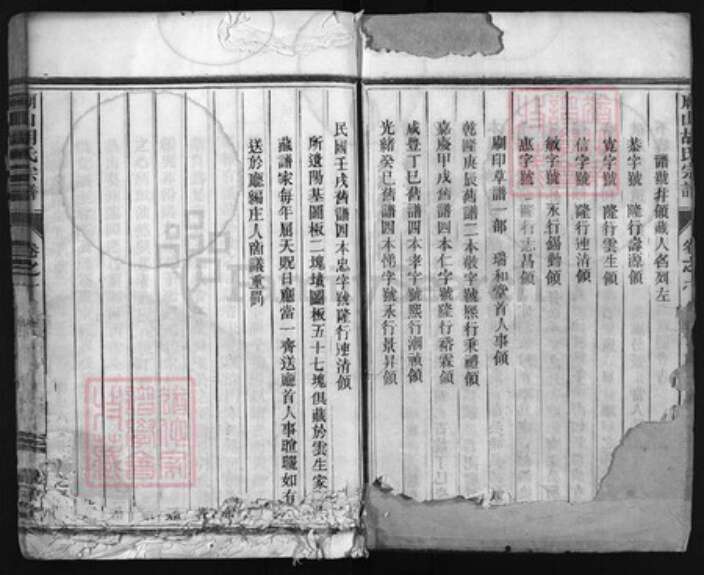 譜號并領藏人名列左
恭字號 隆行壽源領
寬字號 隆行雲生領
信字號 隆行連清領
敏字號 永行錫勳領
惠字號 隆行志昌領
刷印草譜一部 瑞和堂首人事領
乾隆庚辰舊譜二本敬字號熙行秉禮領
嘉慶甲戌舊譜四本仁字號隆行裕霖領
咸豐丁巳舊譜四本孝字號熙行潮禎領
光緒癸巳舊譜四本悌字號永行景昇領
民國壬戌舊譜四本忠字號隆行連清領
所遺陽基圖板二塊墳圖板五十七塊俱藏於雲生家
藏譜家每年屆天貺日應當一齊送廳首人事暄曬如有
送於廳 家庄人衛議重罰
山胡氏宗譜
卷之